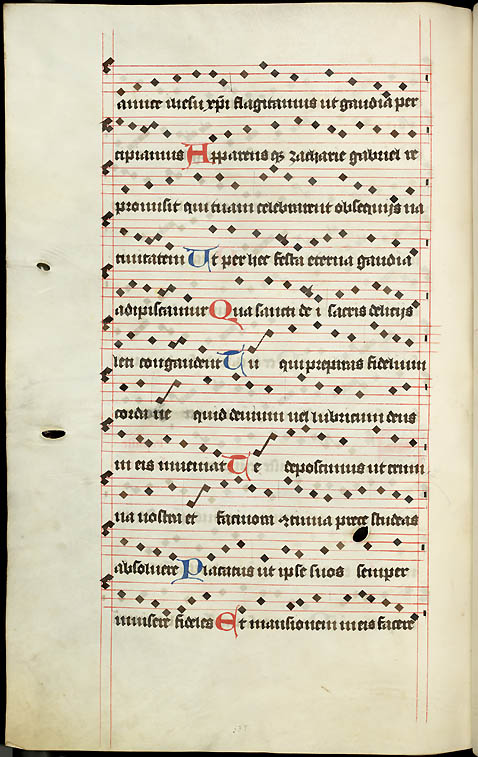 amice ihesu xpi flagitamus ut gaudia per
cipiamus Apparens q3 zacharie gabriel re
promisit qui tuam celebrarent obsequijs na
tiuitatem Ut per hec festa eterna gaudia
adipiscamur Qua sancti de i sacris delicijs
leti congaudent Tu qui preparas fidelium
corda ne quid deuium uel lubricum deus
in eis inueniat Te deposcimus ut crimi
na nostra et facinora 9tinua prece studeas
absoluere Placatus ut ipse suos semper
inuisere fideles Et mansionem in eis facere